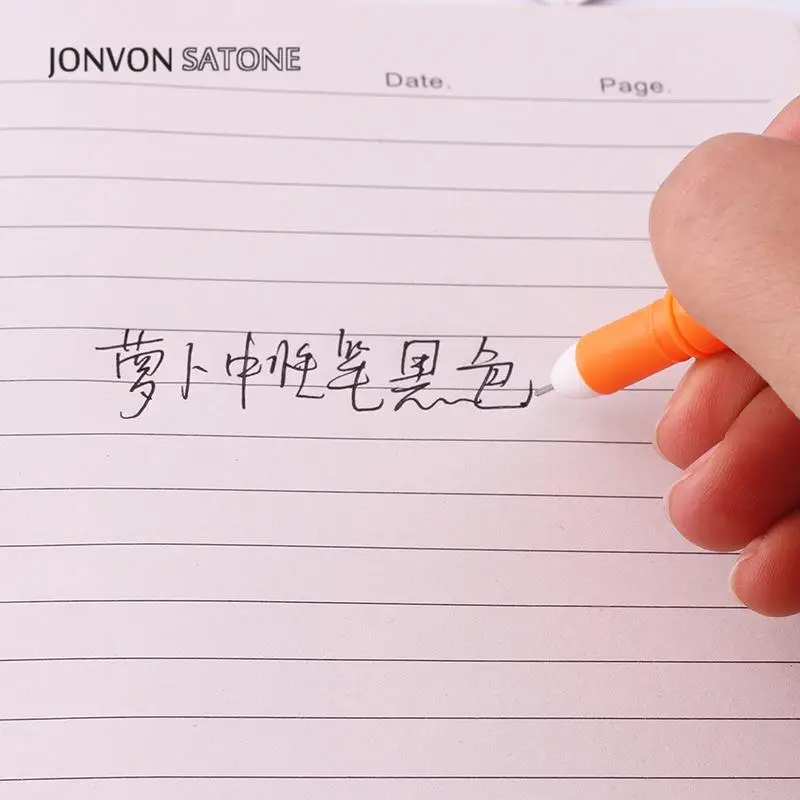 JONVON SATONE
Date. Page.
萝卜中性笔黑色